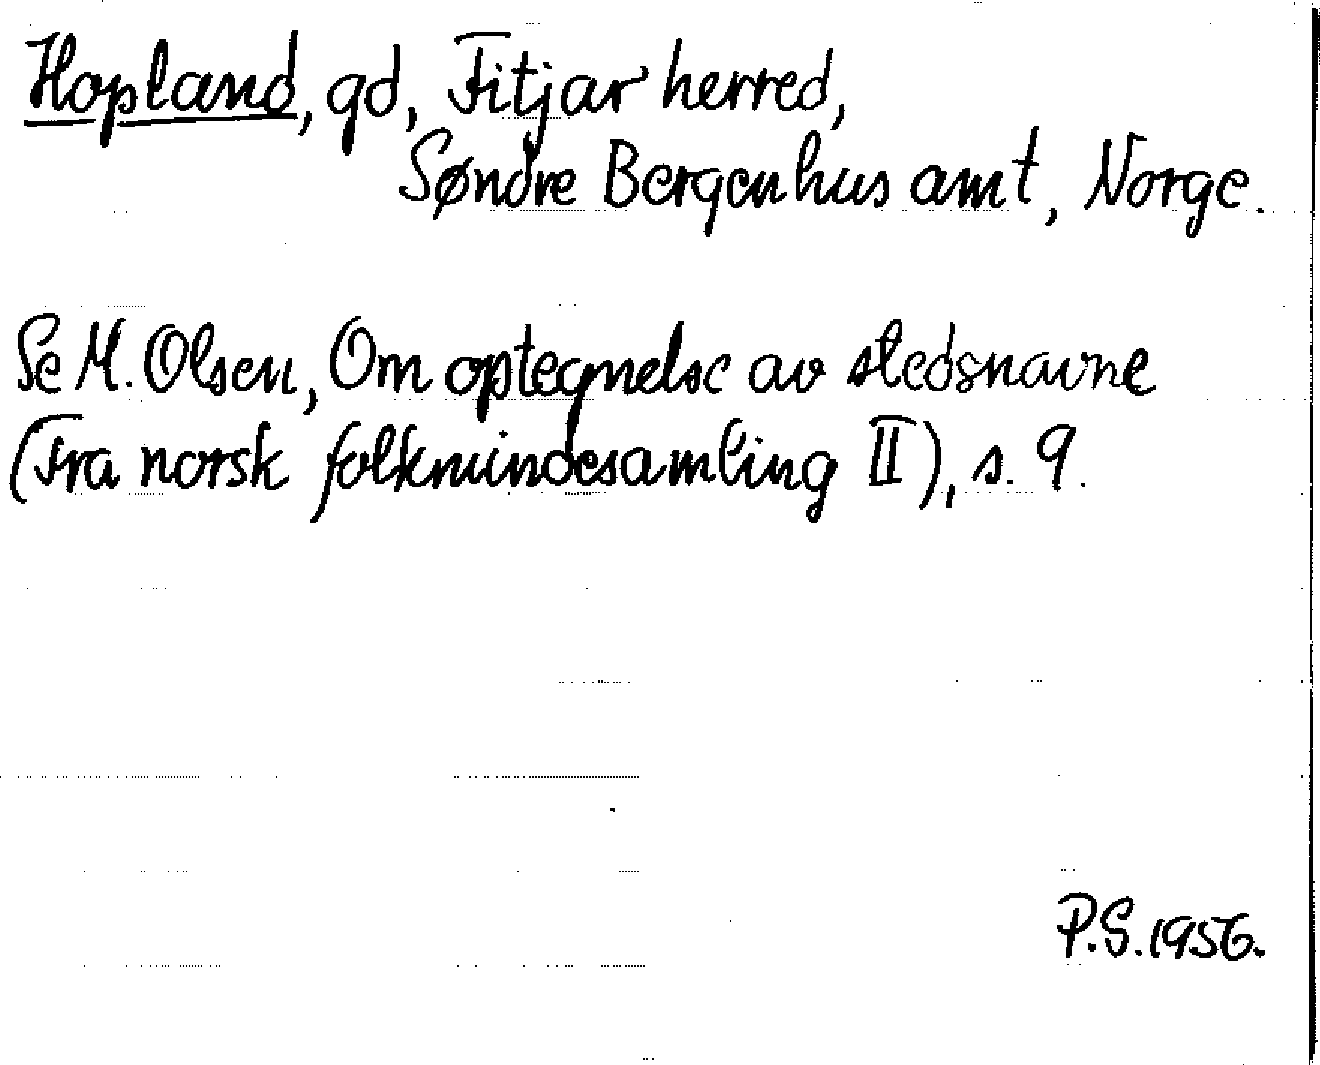 Hopland, gd, Fitjar herred,
Søndre Bergenhus amt, Norge.
Se M. Olsen, Om optegnelse av stedsnavne
(Fra norsk folkmindesamling II), s. 9.
P.S. 1956.